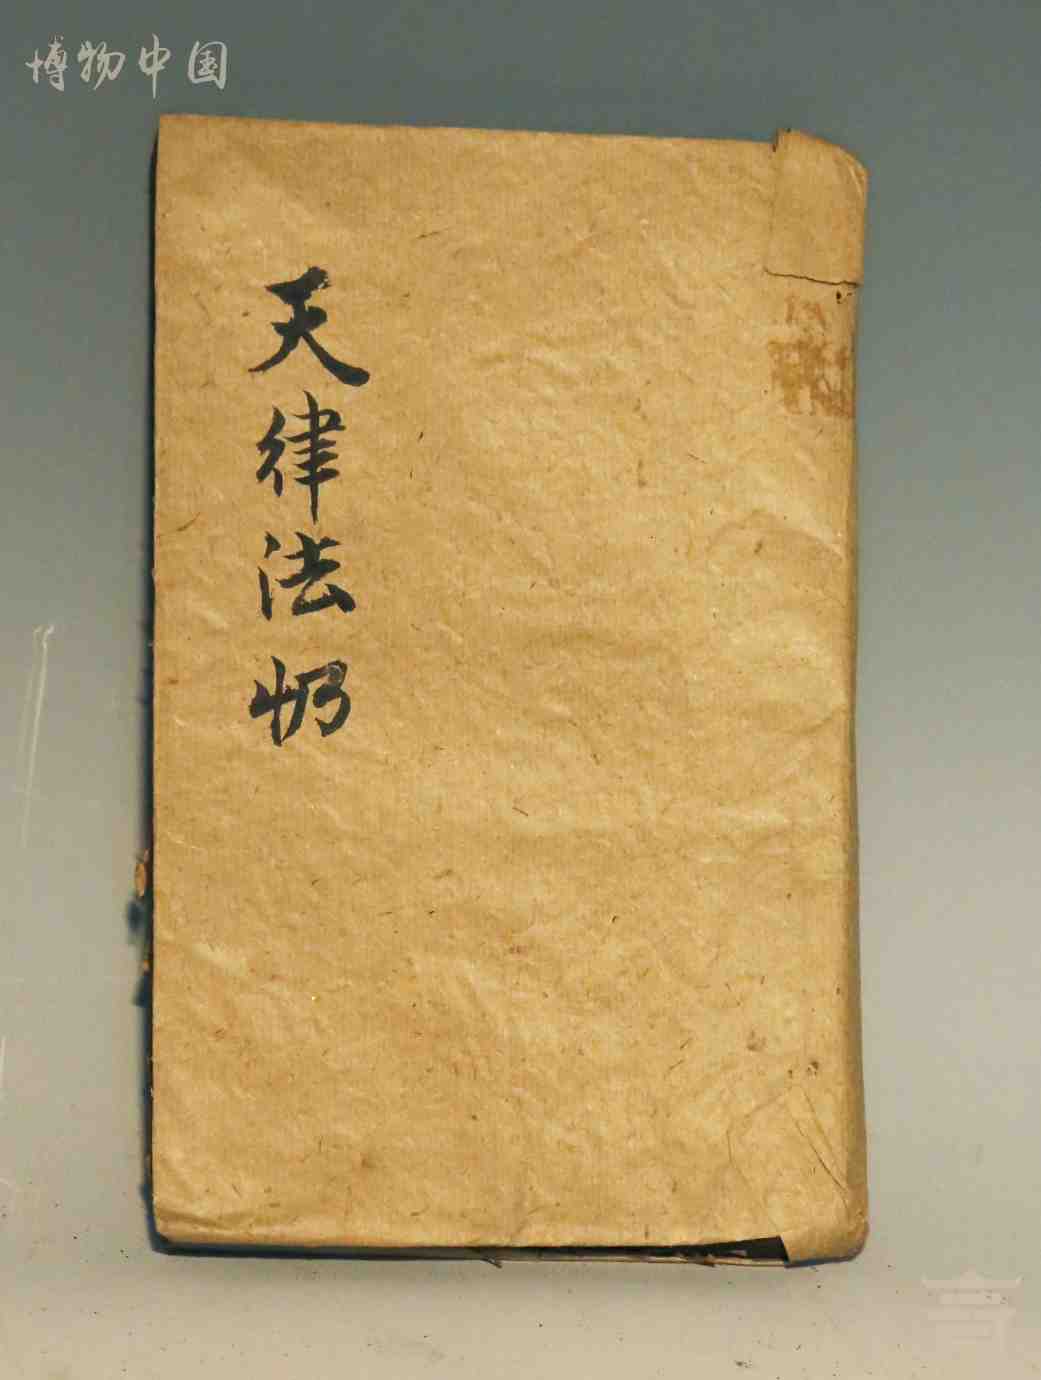 博物中国
天律法